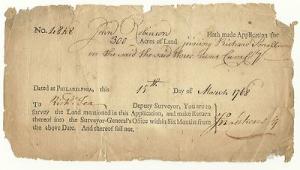 No. 4868 John Robinson Hath made Application for
300 Acres of Land joining Richard
on the said the said
Dated at PHILADELPHIA, this 15th Day of March 1768
To Deputy Surveyor, You are to
survey the Land mentioned in this Application, and make Return
thereof into the Surveyor-General's Office within Six Months from
the above Date. And thereof fail not.